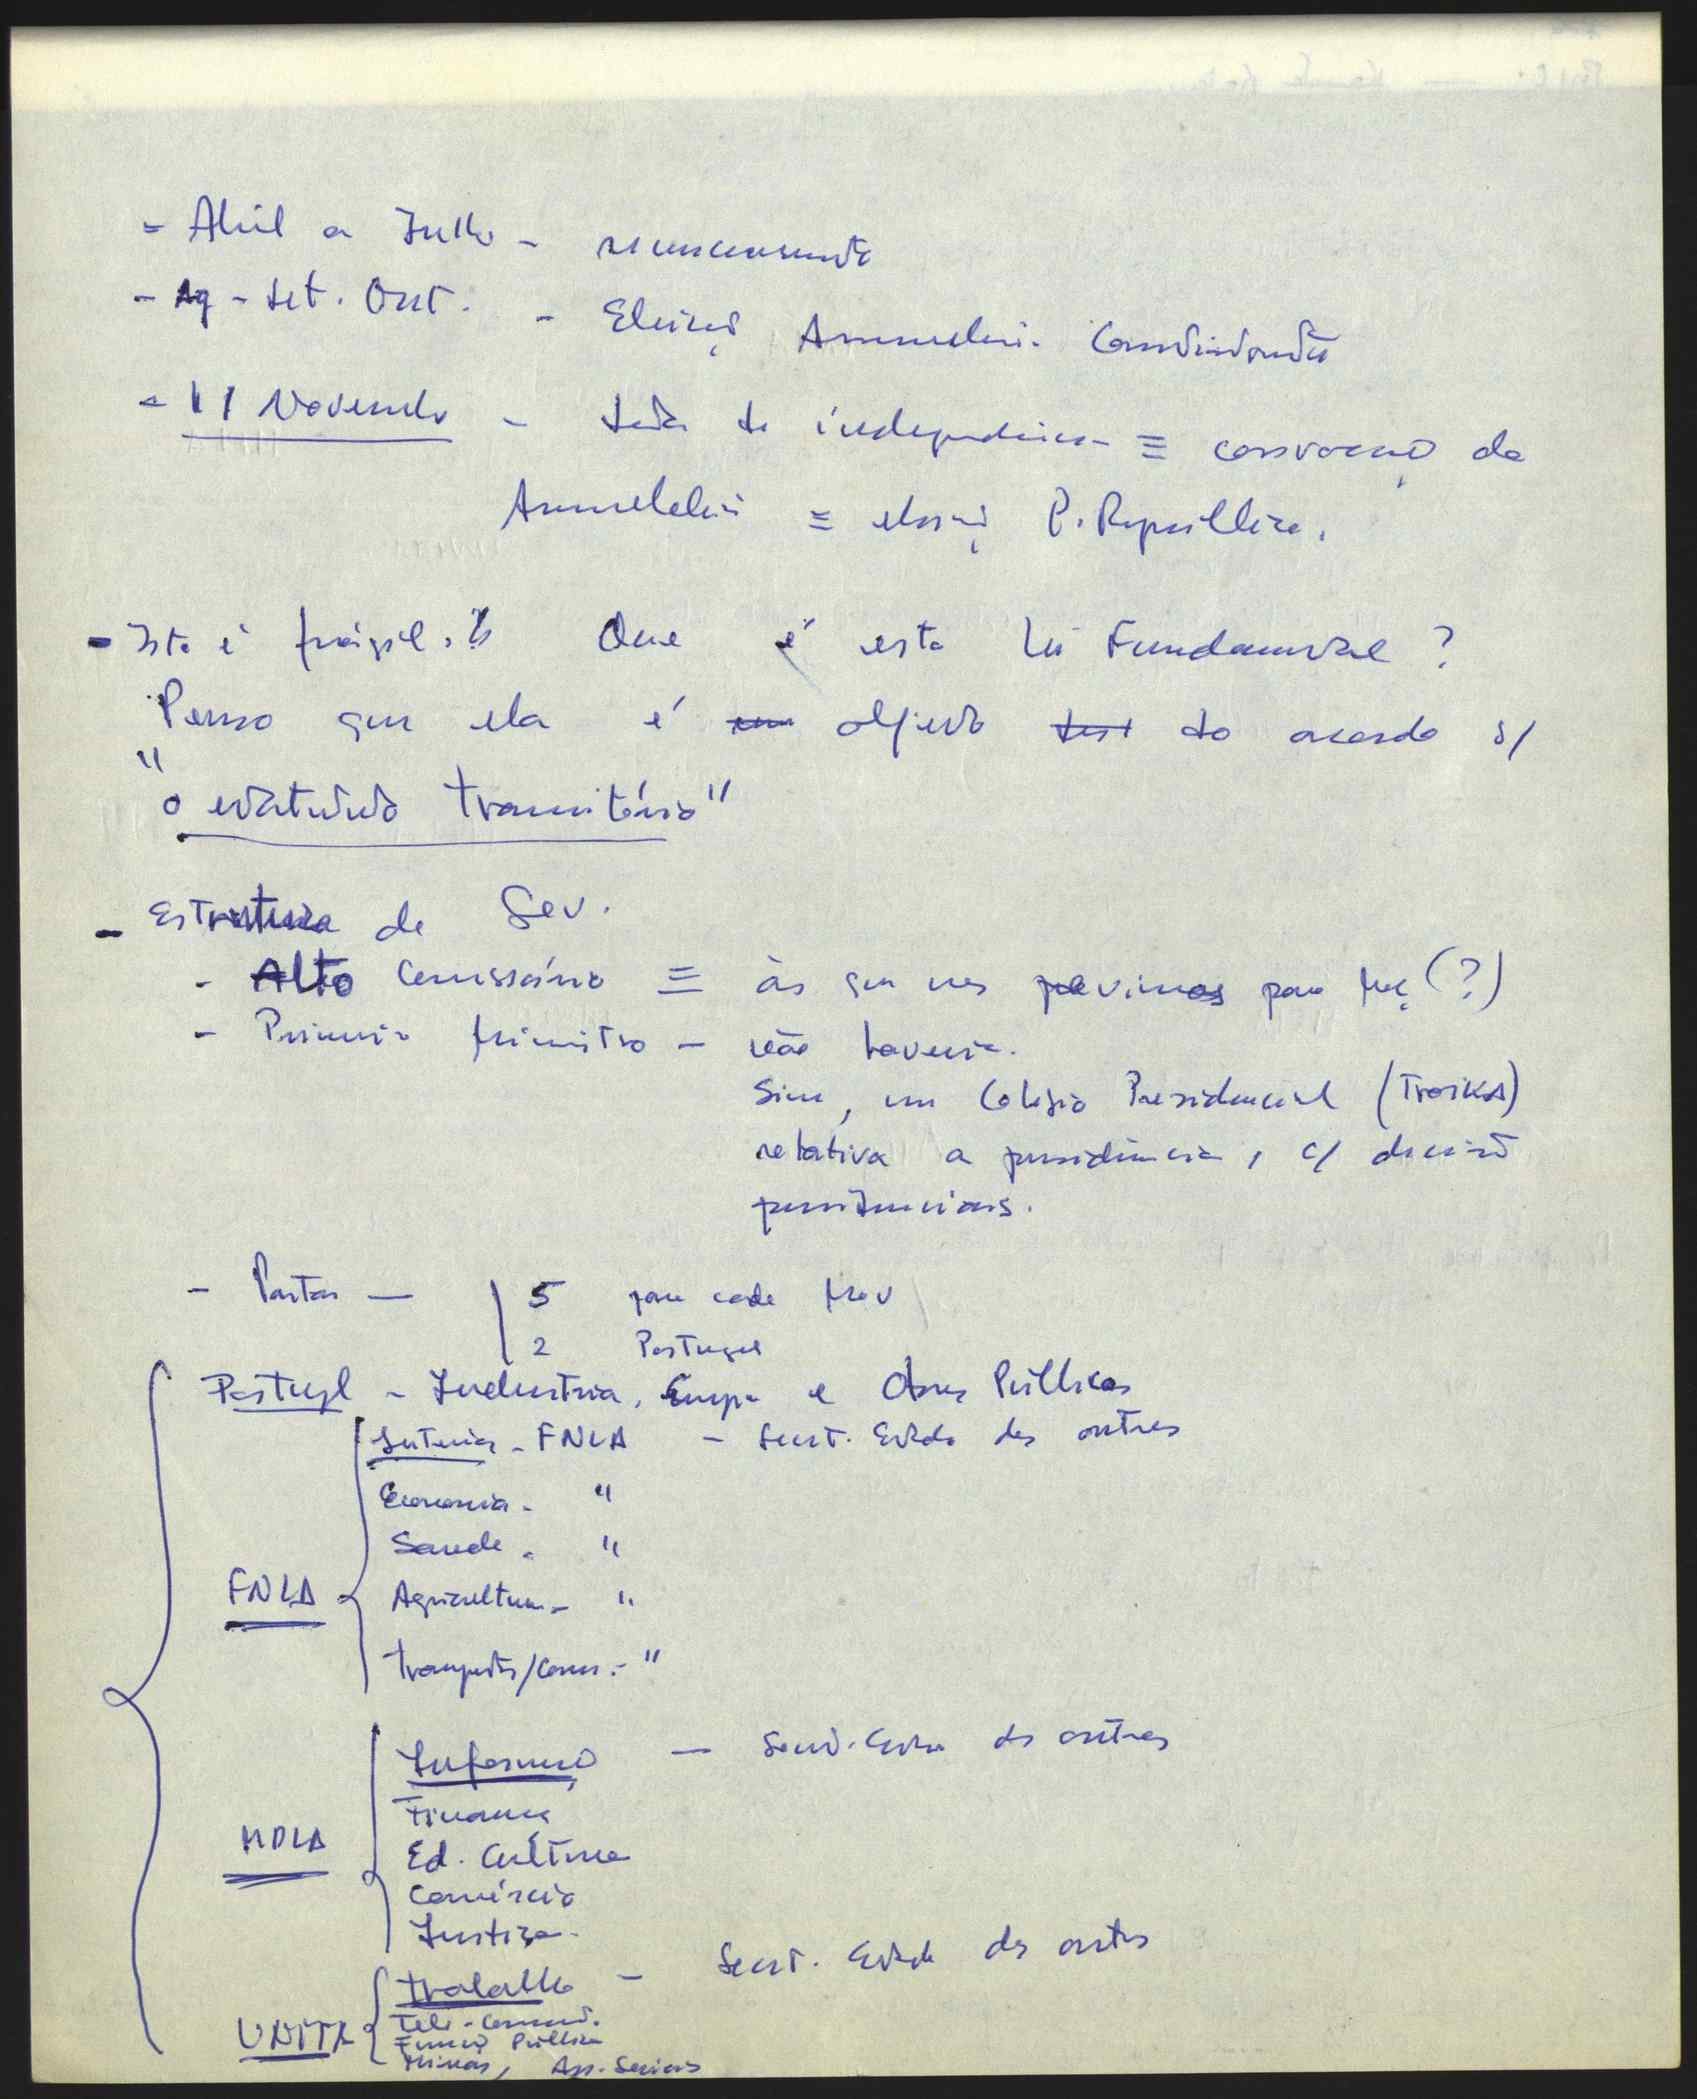 - Abril a Julho - recenseamento
- Ag - Set. Out. - Eleição Assembleia Constituinte
- 11 Novembro - data da independência ≡ convocação da
Assembleia ≡ eleição P. República.
- Isto é frágil.? Que é esta Lei Fundamental?
Penso que ela é um objecto do acordo s/
"o estatuto transitório"
- Estrutura de Gov.
- Alto Comissário ≡ às que nos previmos para Moç (?)
- Primeiro Ministro - não haveria.
Sim, um Colégio Presidencial (Troika)
relativa a presidência, c/ decisão
presidenciais.
- Pastas - 5 para cada Mov
2 Portugal
Portugal - Industria, e Obras Públicas
Interior - FNLA - Secret. Estado dos outros
Economia - "
Saude - "
FNLA Agricultura - "
Transportes/Com. - "
Informação - Secret. Estado dos outros
Finanças
MPLA Ed. Cultura
Comércio
Justiça -
Trabalho - Secret. Estado dos outros
Tele-Comun.
UNITA Função Pública
Minas, Ass. Sociais